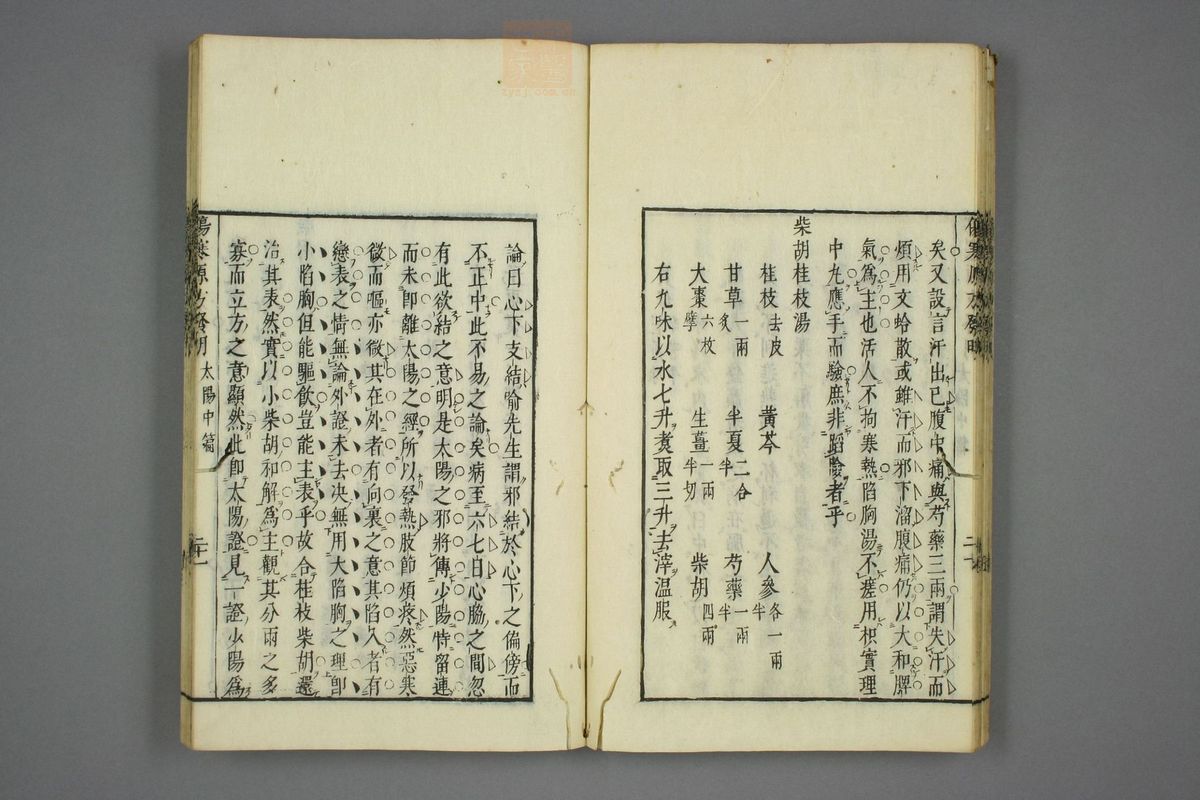 傷寒原方發明
矣又設言汗出已腹中痛與芍藥三兩謂失汗而
煩用文蛤散或雖汗而邪下溜腹痛仍以大和脾
氣爲主也活人不拘寒熱陷胸湯不瘥用枳實理
中九應手而驗庶非蹈險者乎
柴胡桂枝湯
桂枝去皮 黃芩 人參各一兩半
甘草一兩炙 半夏二合半 芍藥一兩半
大棗六枚擘 生薑一兩半切 柴胡四兩
右九味以水七升煑取三升去滓温服
論曰心下支結喻先生謂邪結於心下之偏傍而
不正中此不易之論矣病至六七日心脇之間忽
有此欲結之意明是太陽之邪將傳少陽恃留連
而未卽離太陽之經所以發熱肢節煩疼然惡寒
微而嘔亦微其在外者有向裏之意其陷入者有
戀表之情無論外證未去决無用大陷胸之理卽
小陷胸但能驅飲豈能主表乎故合桂枝柴胡還
治其表然實以小柴胡和解爲主觀其分兩之多
寡而立方之意顯然此卽太陽證見一證少陽爲
傷寒原方發明 太陽中篇 二十一
zysj.com.cn